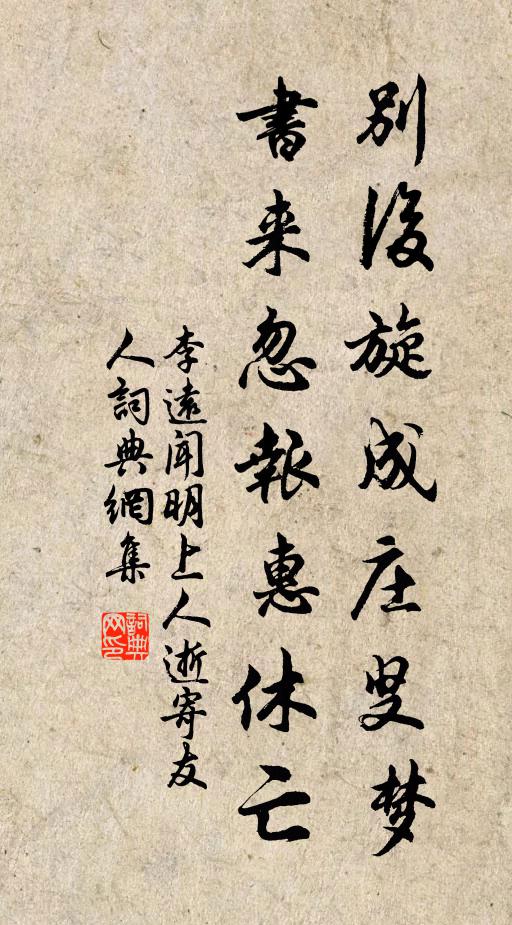 别後旋成庄叟梦
書来忽報惠休亡
李遠闻明上人逝寄友
人詞典網集
詞典网印